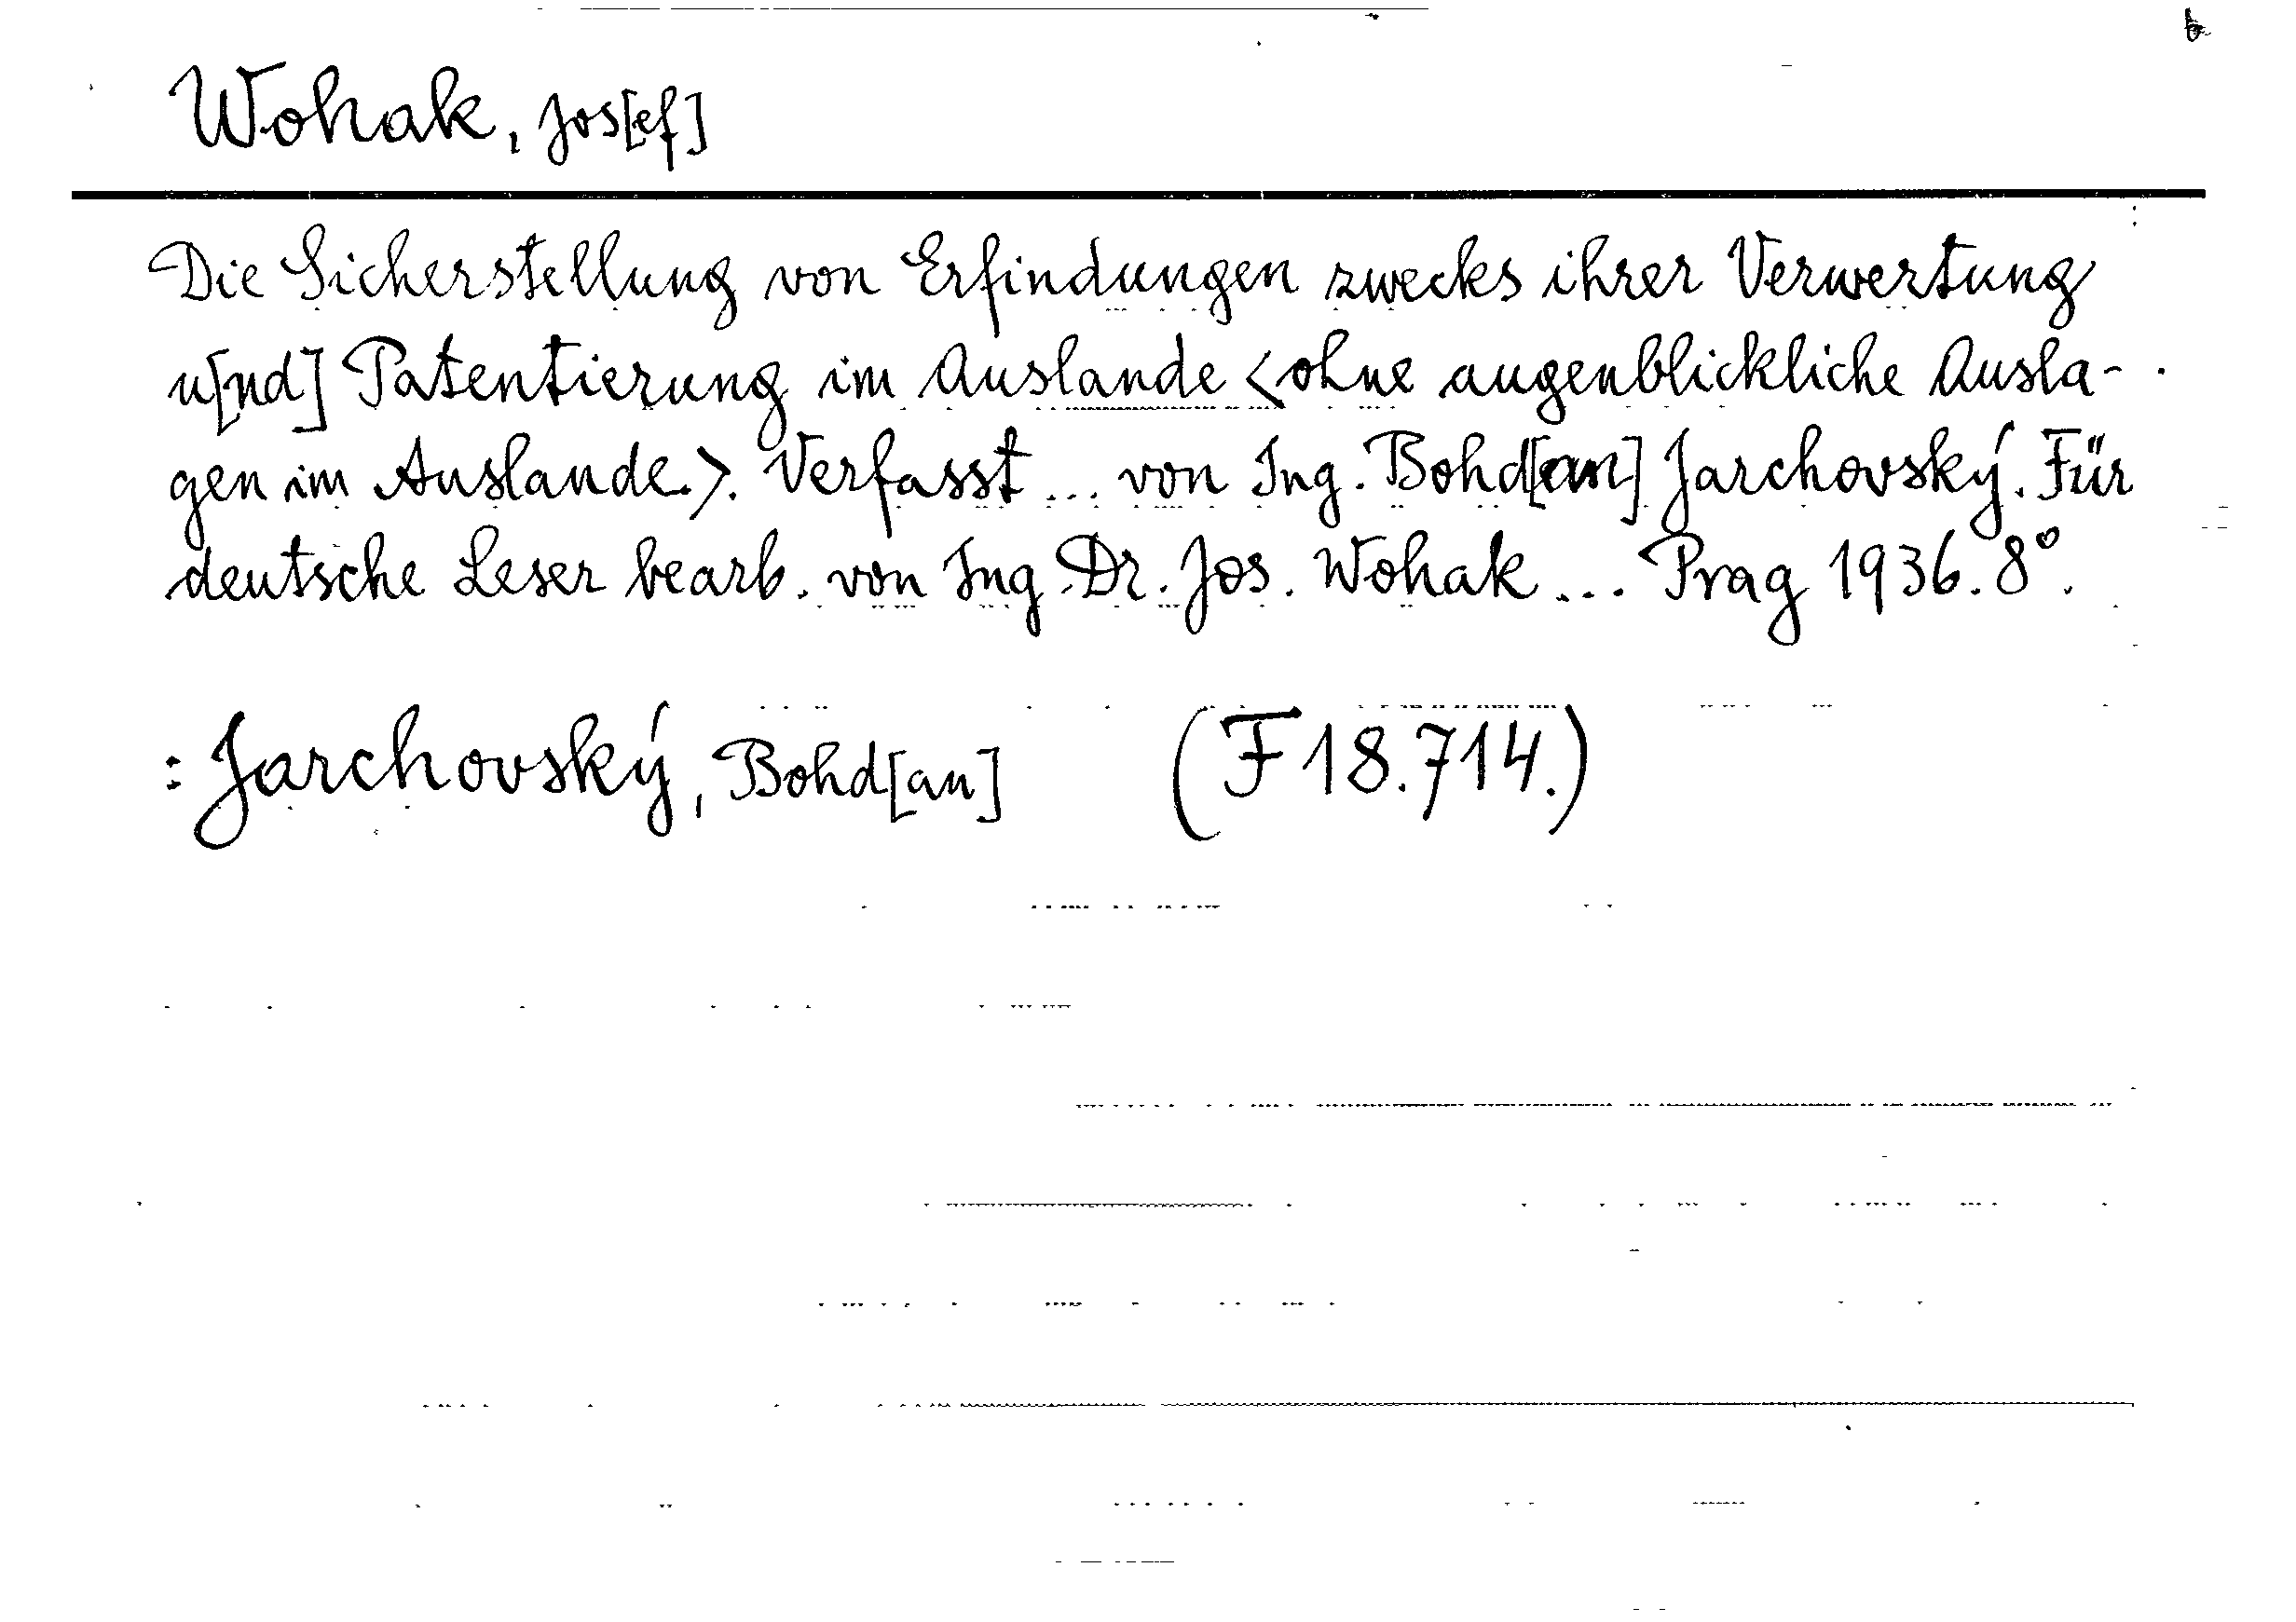 Wohak, Jos[ef]
Die Sicherstellung von Erfindungen zwecks ihrer Verwertung
u[nd] Patentierung im Auslande <ohne augenblickliche Ausla-
gen im Auslande.>. Verfasst ... von Ing. Bohd[an] Jarchovský. Für
deutsche Leser bearb. von Ing. Dr. Jos. Wohak ... Prag 1936. 8°.
: Jarchovský, Bohd[an] (F 18.714.)